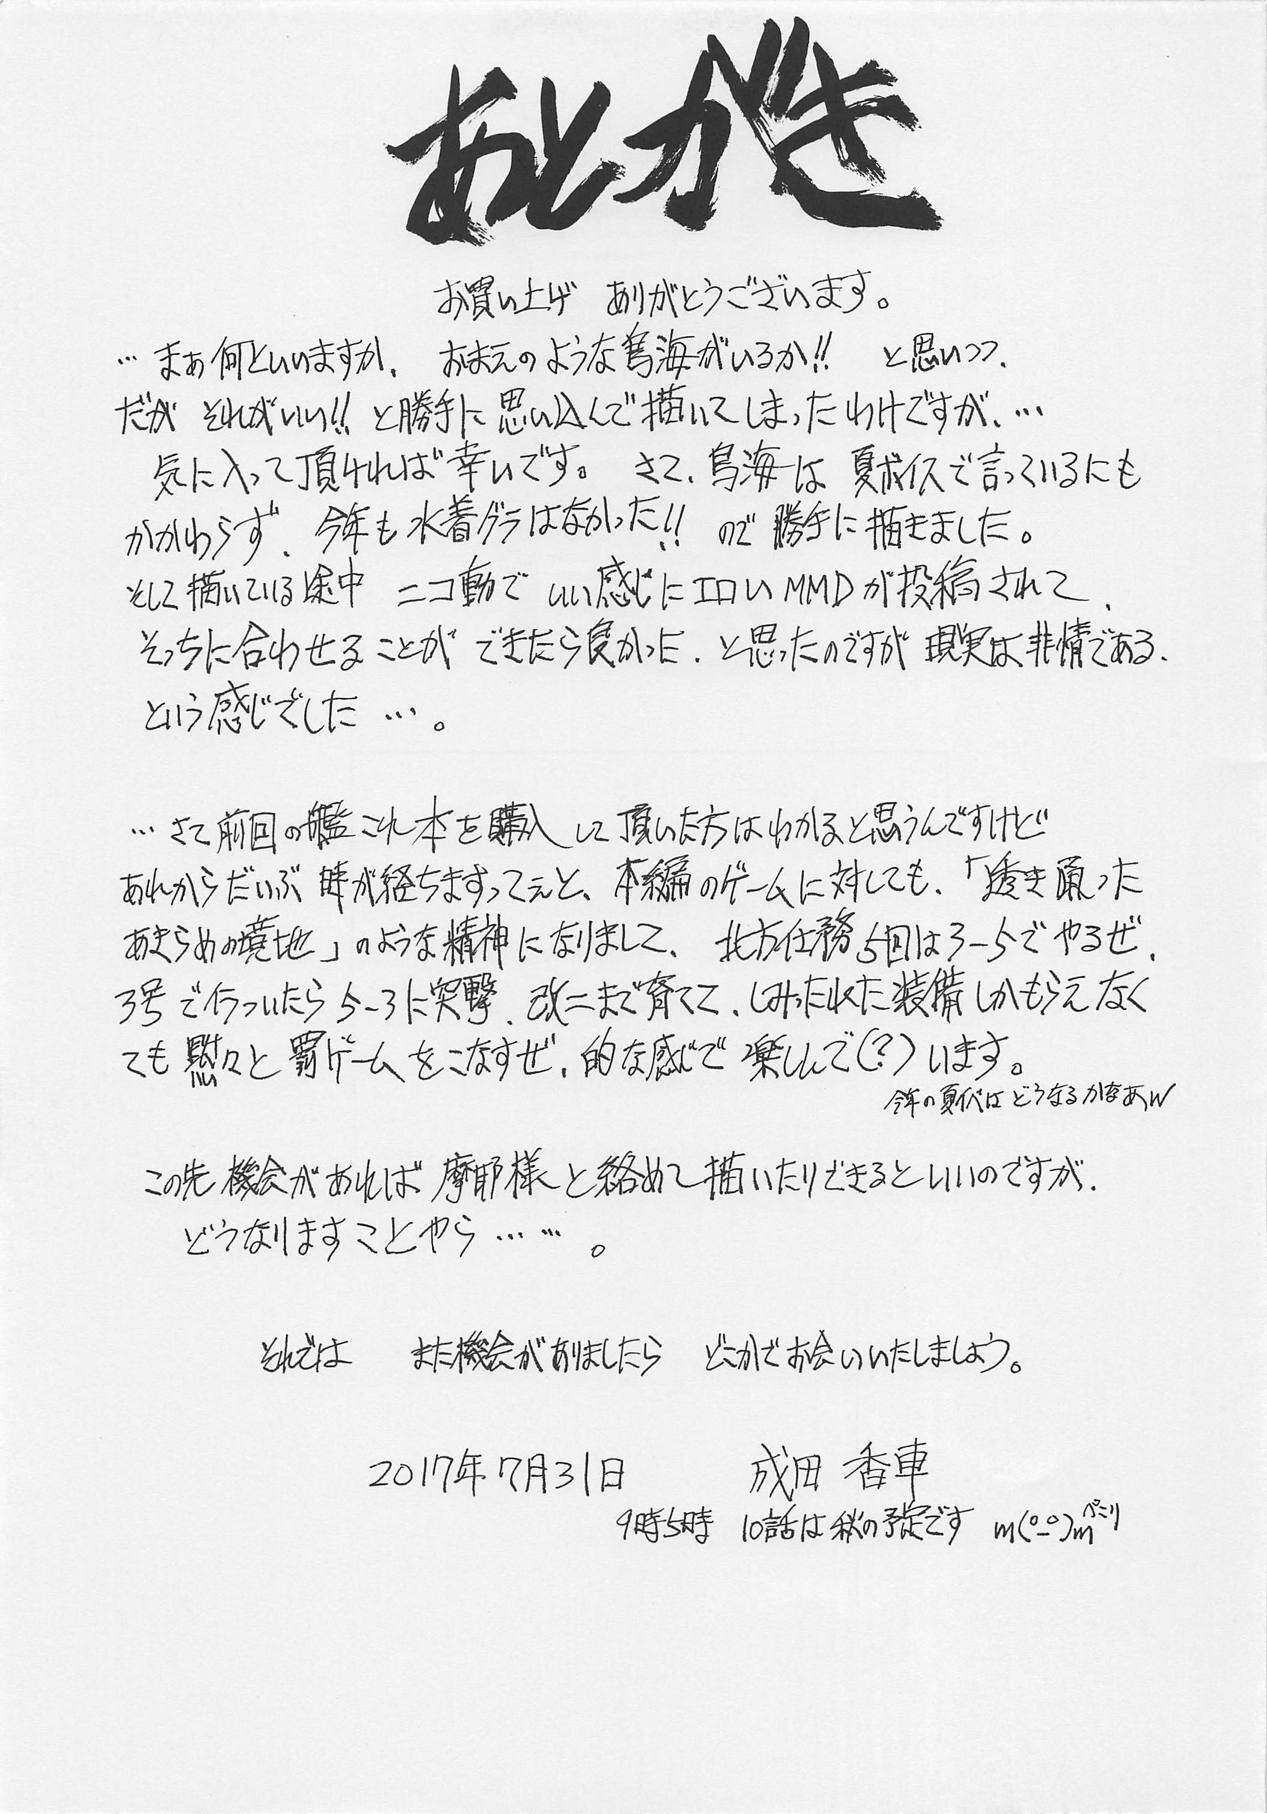 あとがき
お買い上げ ありがとうございます。
…まぁ何といいますか、 おまえのような鳥海がいるか!! と思いつつ、
だが それがいい!! と勝手に思い込んで描いてしまったわけですが、…
気に入って頂ければ幸いです。 さて、鳥海は 夏ボイスで言っているにも
かかわらず、今年も水着グラはなかった!! ので 勝手に描きました。
そして描いている途中 ニコ動で いい感じにエロいMMDが投稿されて、
そっちに合わせることが できたら良かった、と思ったのですが 現実は、非情である、
という感じでした …。
…さて前回の艦これ本を購入して頂いた方はわかると思うんですけど
あれからだいぶ 時が経ちますってぇと、本編のゲームに対しても、「透き通った
あきらめの境地」のような精神になりまして、 北方任務5回は3-5でやるぜ、
3号でイラついたら5-3に突撃、改二まで育てて、しみったれた装備しかもらえなく
ても 黙々と 罰ゲームをこなすぜ、的な感じで 楽しんで(?)います。
今年の夏イベは どうなるかなあw
この先 機会があれば 摩耶様と絡めて描いたりできるといいのですが、
どうなりますことやら……。
それでは また機会がありましたら どこかでお会いいたしましょう。
2017年7月31日 成田 香車
9時5時 10話は秋の予定です m(°_°)m ペコリ